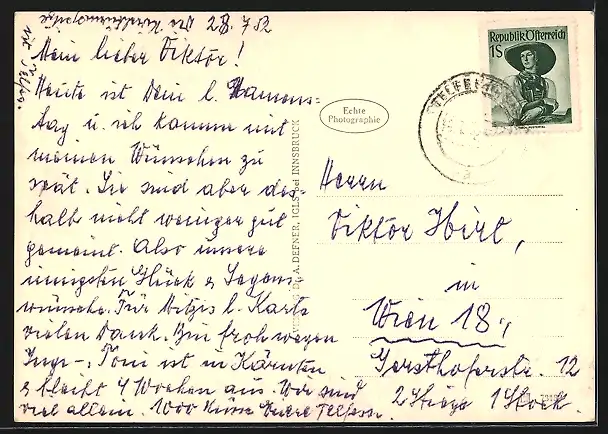 28. 7 52
Mein lieber Viktor!
Heute ist Dein l. Namens=
tag u. ich komme mit
meinen Wünschen zu
spät. Sie sind aber des
halb nicht weniger gut
gemeint. Also unsere
innigsten Glück & Segens
wünsche. Für Mitzis l. Karte
vielen Dank. Bin froh wegen
Inge. Toni ist in Kärnten
& bleibt 4 Wochen aus. Wir sind
viel allein. 1000 Küsse
Echte
Photographie
A. DEFNER, IGLS bei INNSBRUCK
Republik Österreich
1S
Herrn
Viktor
in
Wien 18.,
Gersthoferstr. 12
2 Stiege 1 Stock.